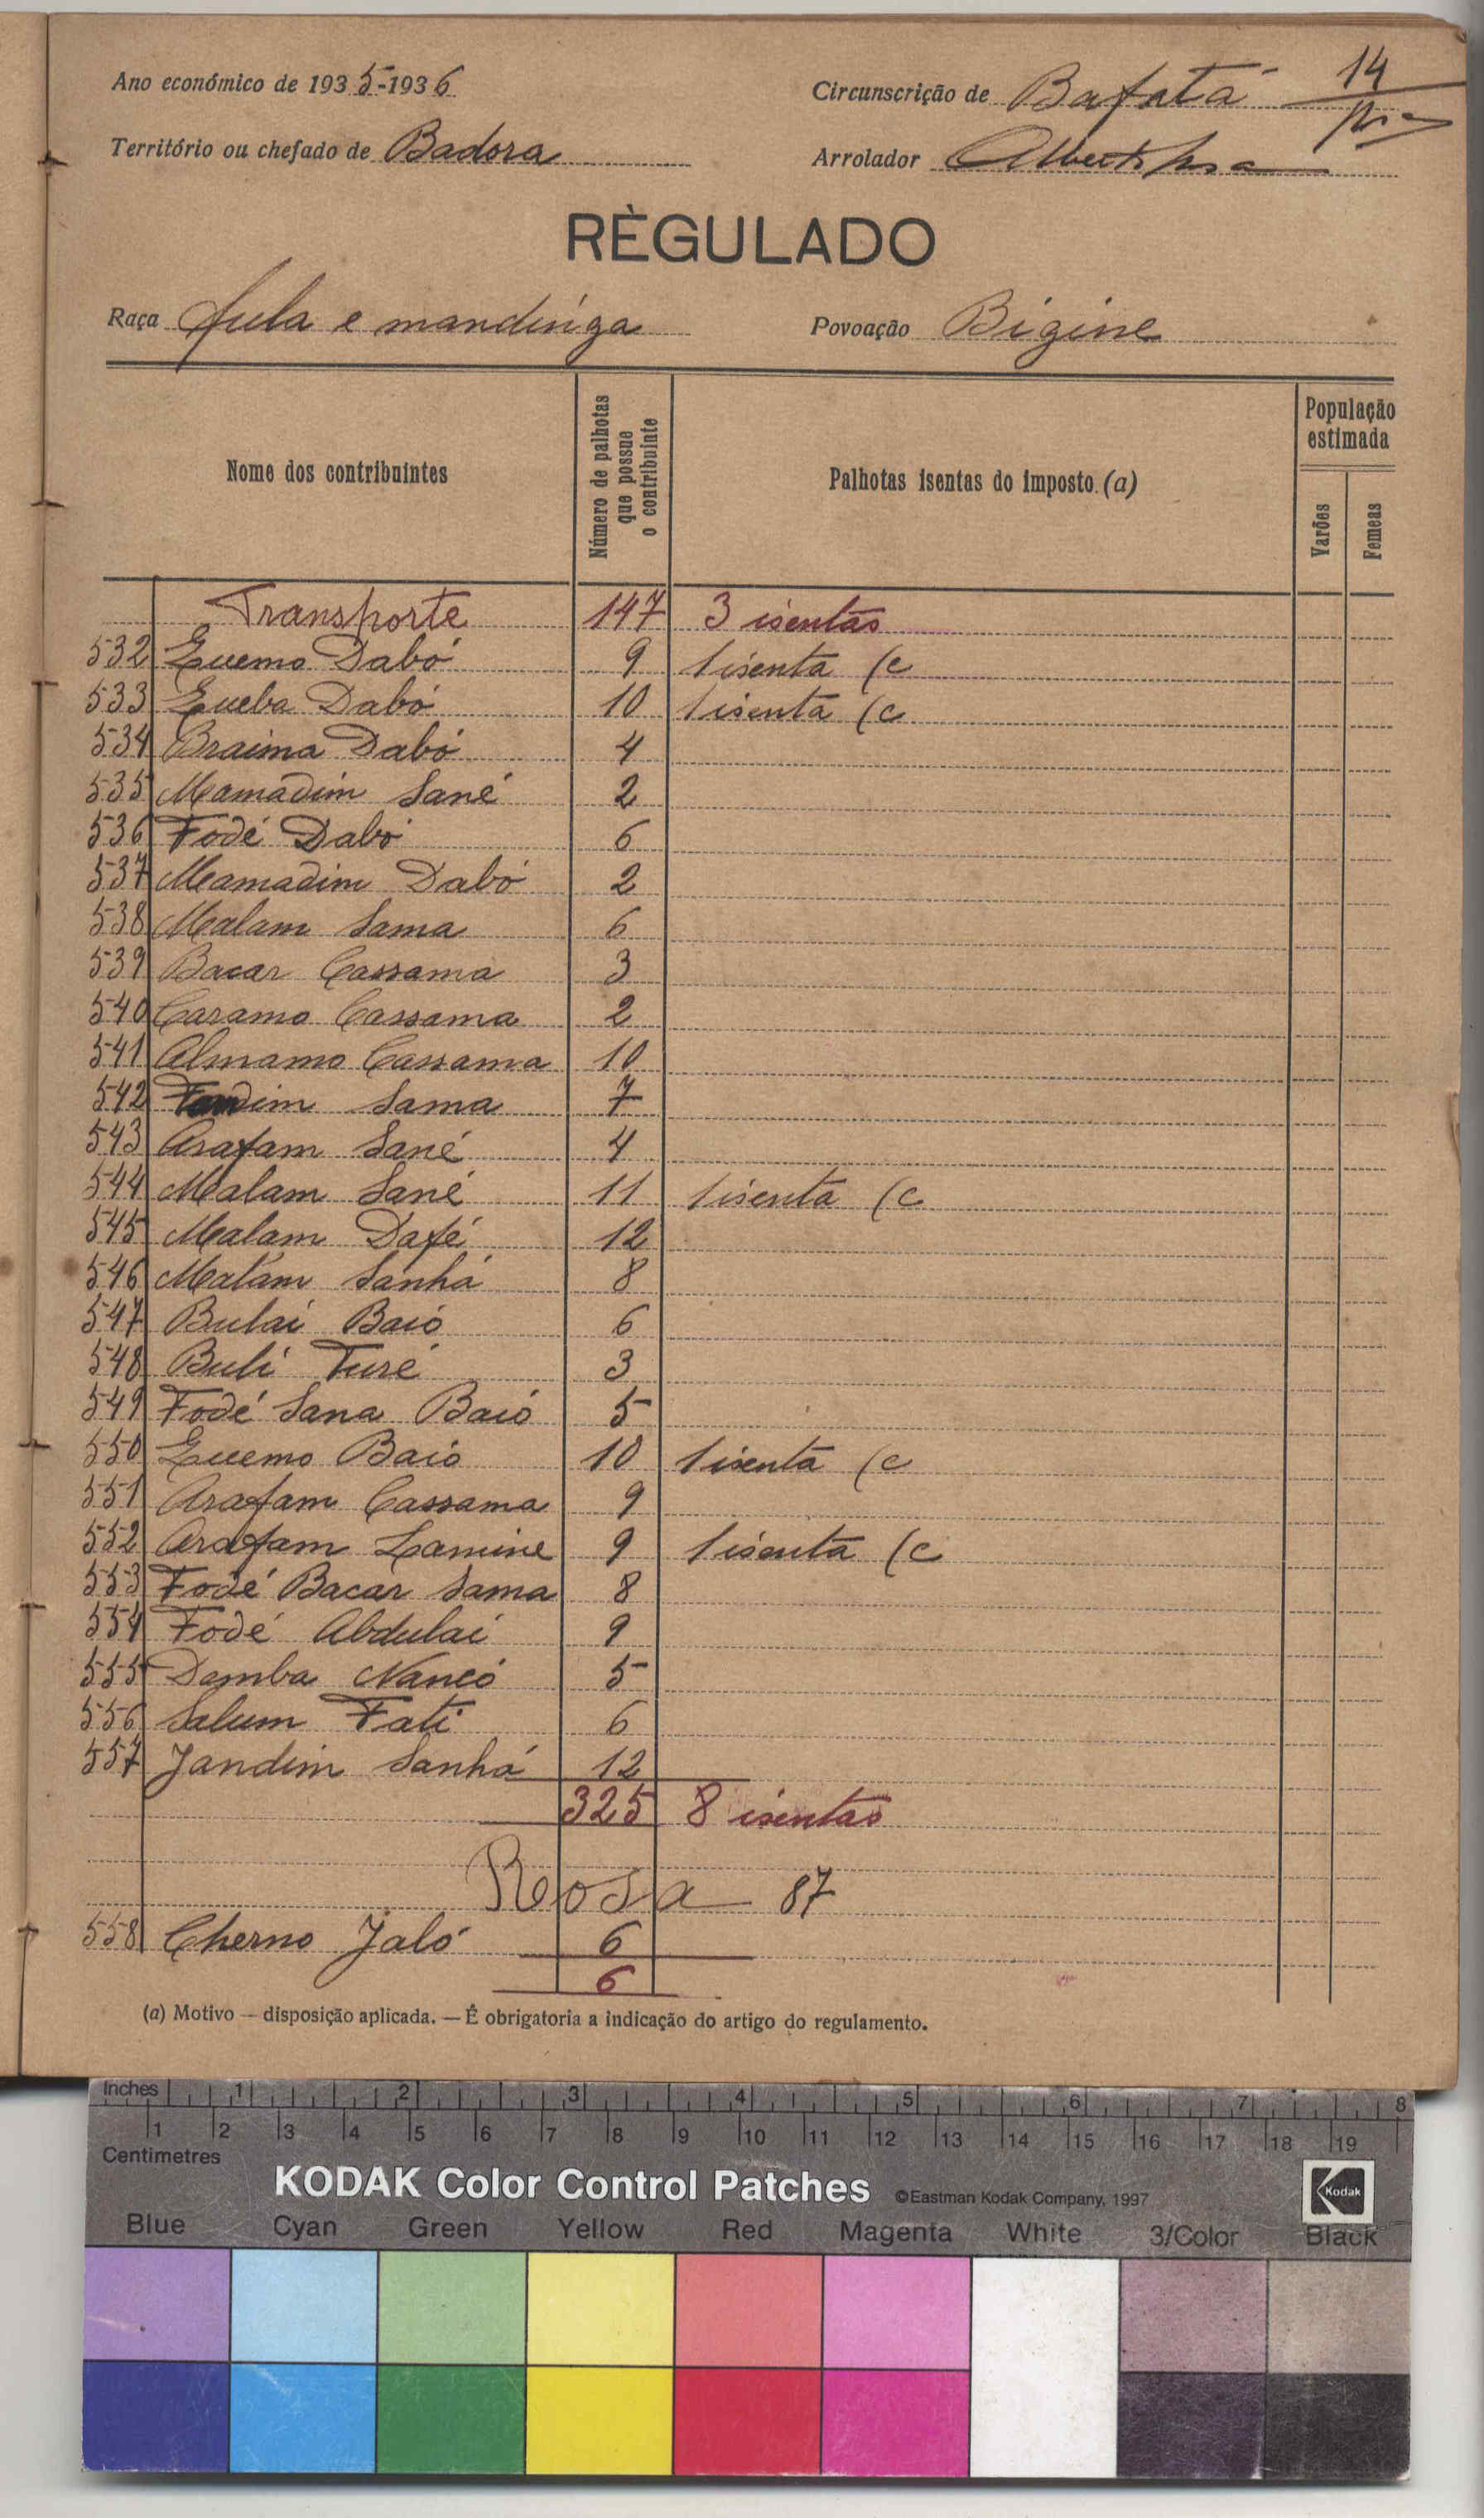 Ano económico de 1935-1936
Circunscrição de Bafatá 14
Território ou chefado de Badora
Arrolador
RÈGULADO
Raça fula e mandinga
Povoação Bigine
Nome dos contribuintes
Número de palhotas que possue o contribuinte
Palhotas isentas do imposto (a)
População estimada
Varões
Femeas
Transporte 147 3 isentas
532 Quemo Dabó 9 1 isenta (c
533 Queba Dabó 10 1 isenta (c
534 Braima Dabó 4
535 Mamadim Sané 2
536 Fodé Dabó 6
537 Mamadim Dabó 2
538 Malam Sama 6
539 Bacar Cassama 3
540 Caramo Cassama 2
541 Almamo Cassama 10
542 Sama 7
543 Arafam Sané 4
544 Malam Sané 11 1 isenta (c
545 Malam Dafé 12
546 Malam Sanhá 8
547 Bulai Baió 6
548 Buli Turé 3
549 Fodé Sana Baió 5
550 Quemo Baió 10 1 isenta (c
551 Arafam Cassama 9
552 Arafam Lamine 9 1 isenta (c
553 Fodé Bacar Sama 8
554 Fodé Abdulai 9
555 Demba Nancó 5
556 Salum Fati 6
557 Jandim Sanhá 12
325 8 isentas
Rosa 87
558 Cherno Jaló 6
6
(a) Motivo — disposição aplicada. — É obrigatoria a indicação do artigo do regulamento.
Inches 1 2 3 4 5 6 7 8
1 2 3 4 5 6 7 8 9 10 11 12 13 14 15 16 17 18 19
Centimetres
KODAK Color Control Patches ©Eastman Kodak Company, 1997 Kodak
Blue Cyan Green Yellow Red Magenta White 3/Color Black